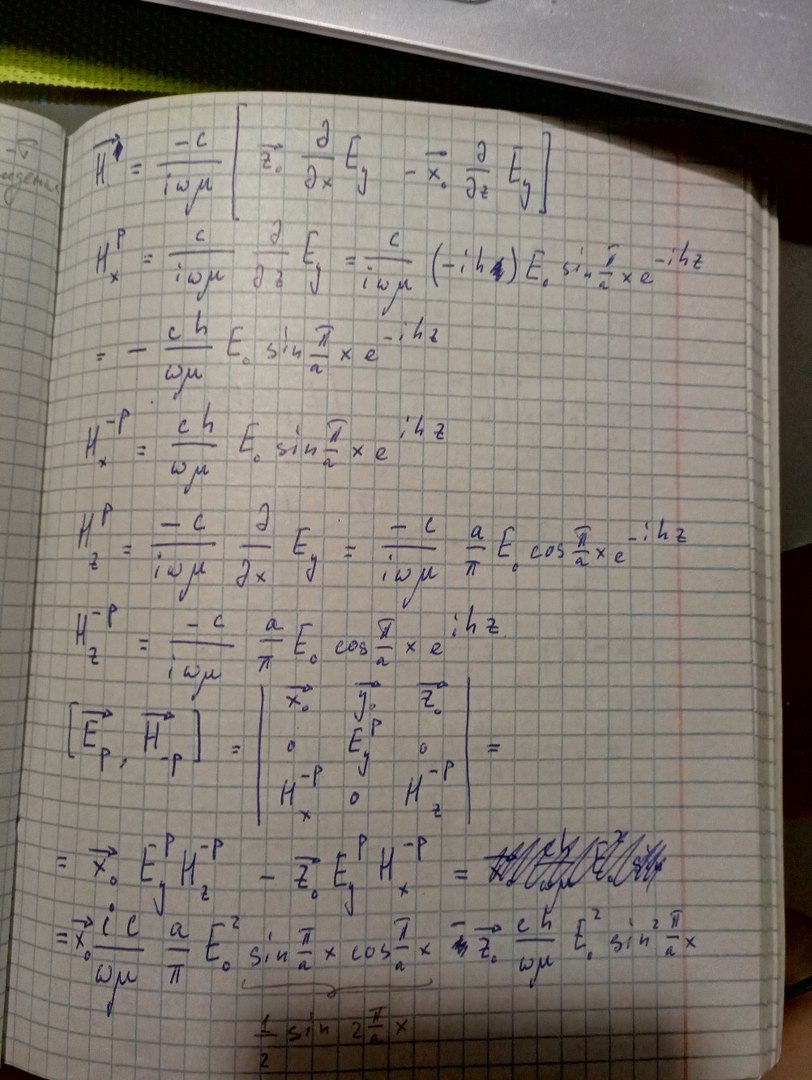 H⃗ = -c/(iωμ) [ z⃗₀ ∂/∂x E_y - x⃗₀ ∂/∂z E_y ]
H_x^P = c/(iωμ) ∂/∂z E_y = c/(iωμ) (-ih) E₀ sin π/a x e^{-ihz}
= - ch/(ωμ) E₀ sin π/a x e^{-ihz}
H_x^{-P} = ch/(ωμ) E₀ sin π/a x e^{ihz}
H_z^P = -c/(iωμ) ∂/∂x E_y = -c/(iωμ) a/π E₀ cos π/a x e^{-ihz}
H_z^{-P} = -c/(iωμ) a/π E₀ cos π/a x e^{ihz}
[E⃗_P, H⃗_{-P}] = | x⃗₀ y⃗₀ z⃗₀ |
| 0 E_y^P 0 | =
| H_x^{-P} 0 H_z^{-P} |
= x⃗₀ E_y^P H_z^{-P} - z⃗₀ E_y^P H_x^{-P} =
= x⃗₀ ic/(ωμ) a/π E₀² sin π/a x cos π/a x - z⃗₀ ch/(ωμ) E₀² sin² π/a x
1/2 sin 2 π/a x